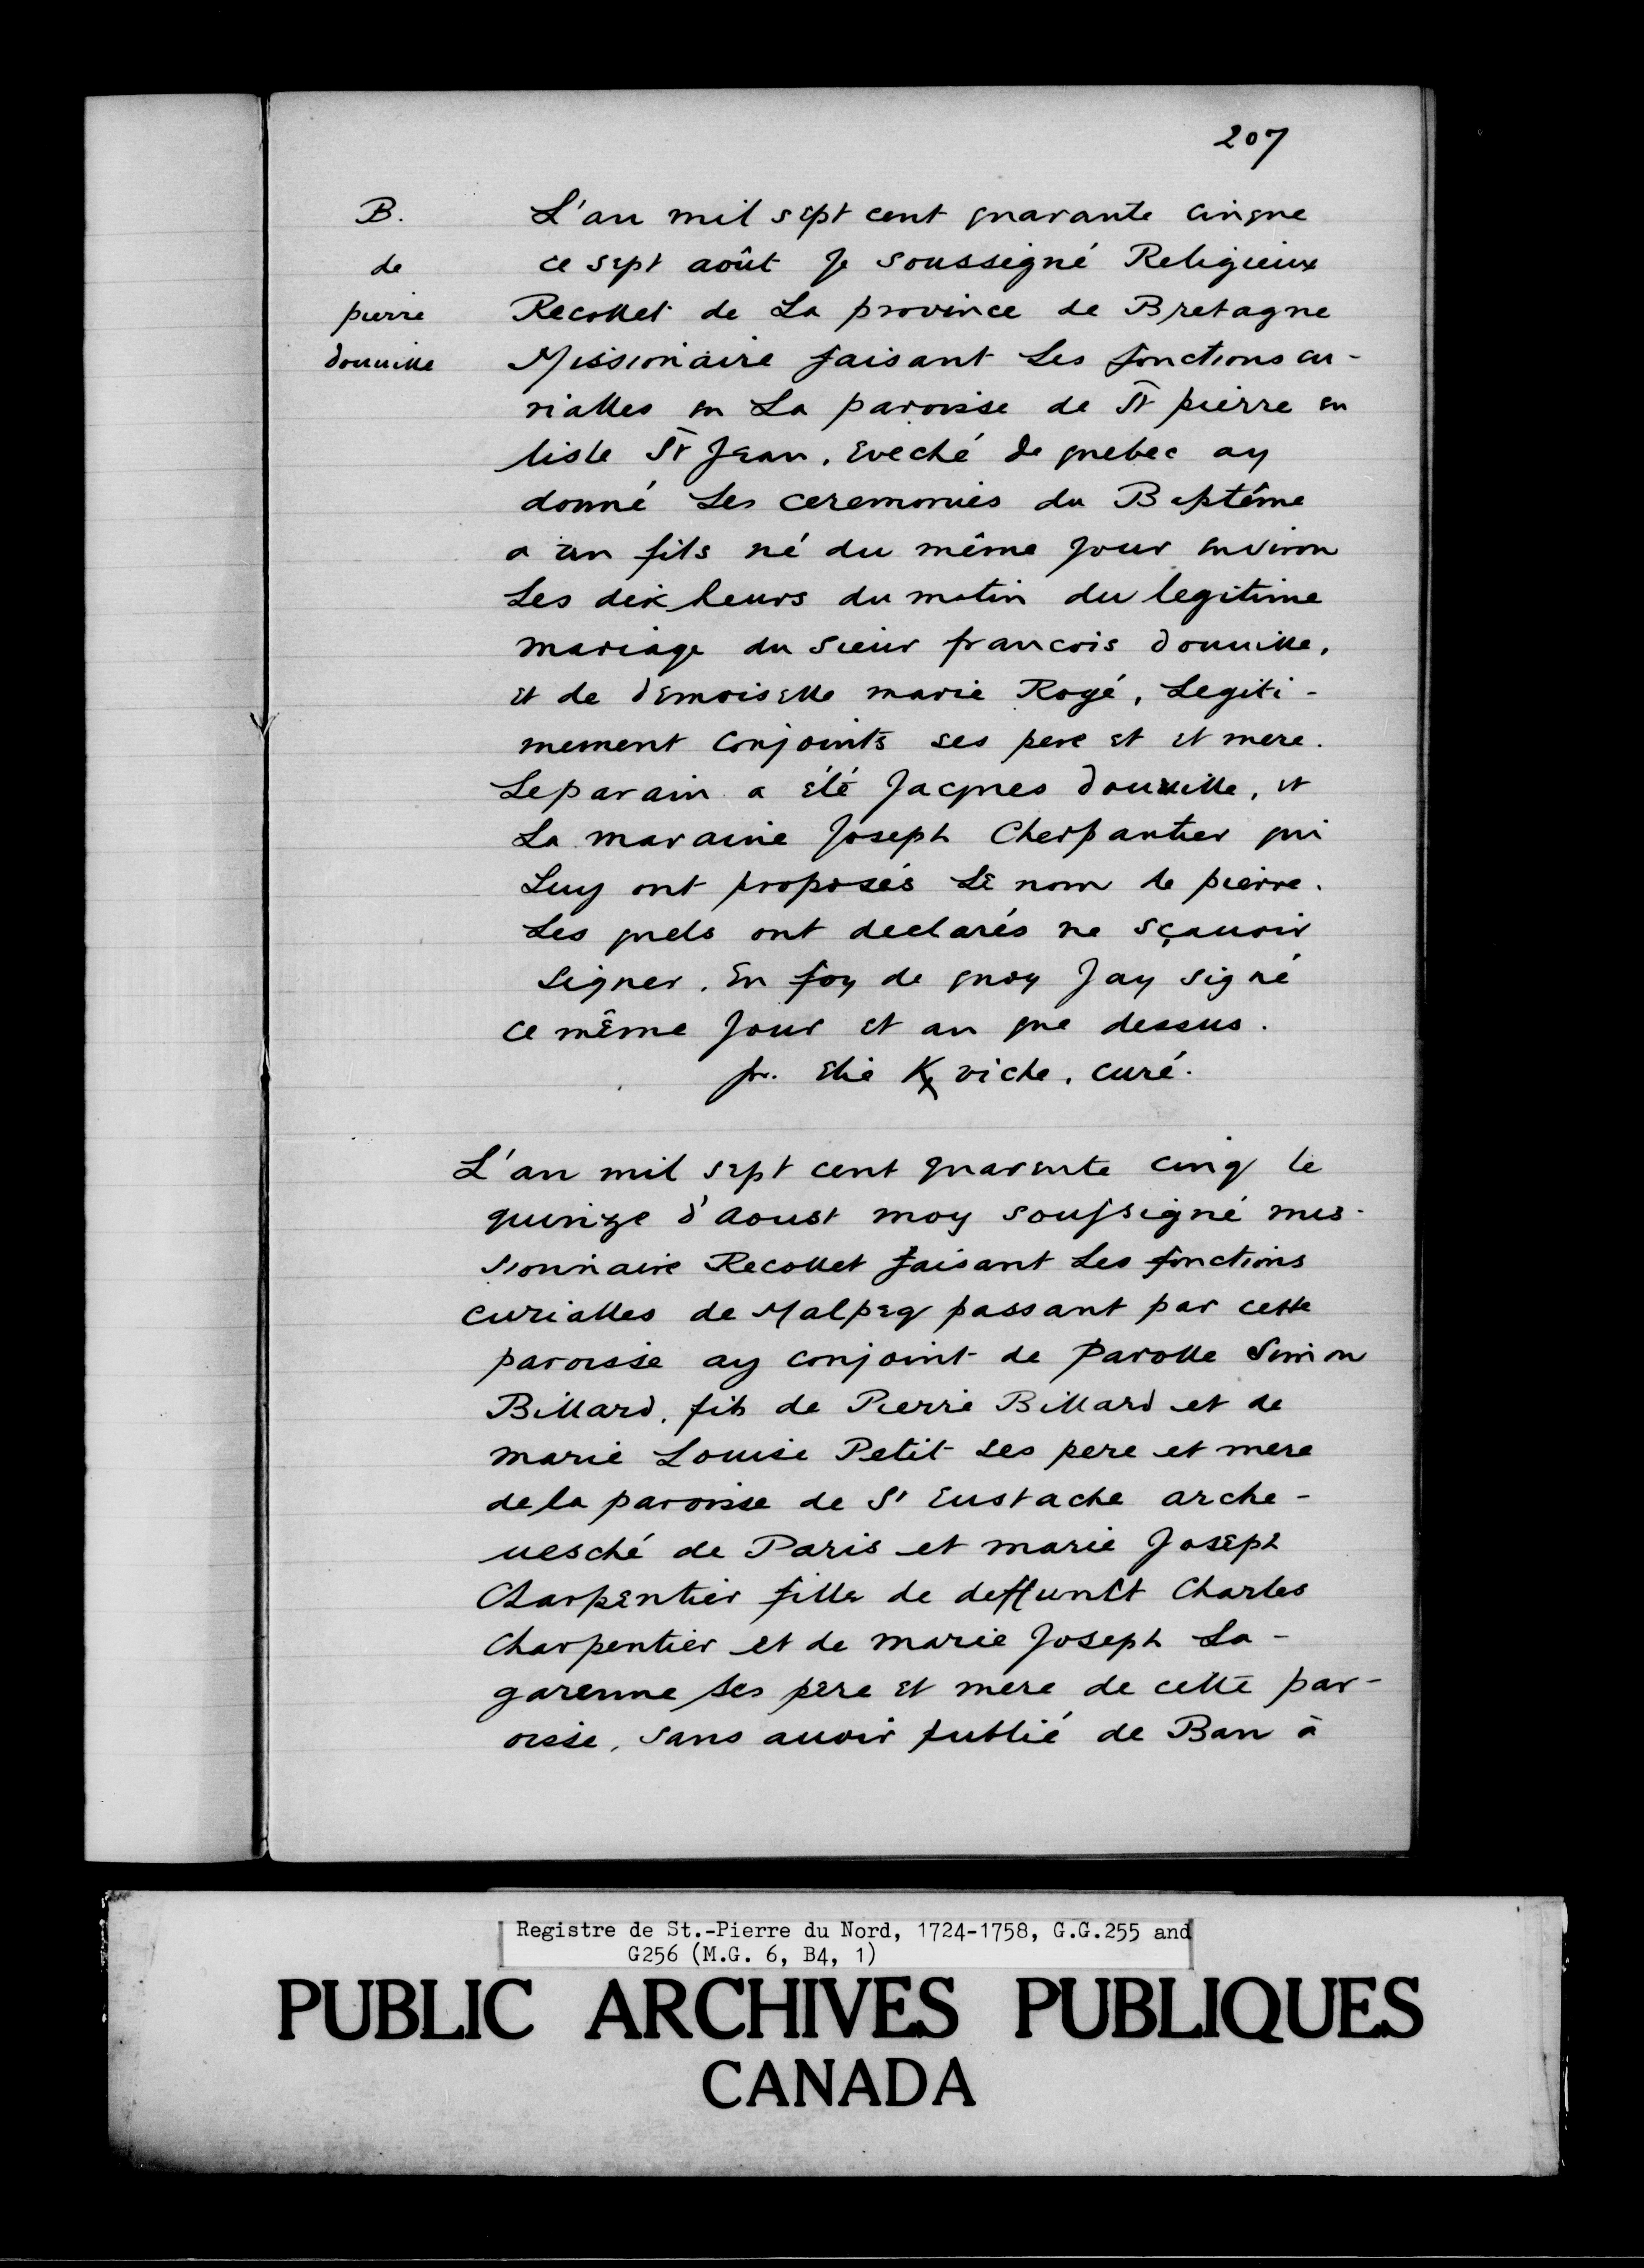 207
B.
de
pierre
douuille
L'an mil sept cent quarante cinque
ce sept août Je soussigné Religieux
Recollet de La province de Bretagne
Missionaire faisant Les fonctions cu-
rialles en La paroisse de St pierre en
lisle St Jean, Eveché de quebec ay
donné Les ceremonies du Baptême
a un fils né du même jour environ
Les dix heurs du matin du legitime
mariage du sieur francois douuille,
et de demoiselle marie Rogé, Legiti-
mement conjoints ses pere et et mere.
Leparain a été Jacques douuille, et
La maraine Joseph Cherpantier qui
Luy ont proposés Le nom de pierre.
Les quels ont declarés ne sçauoir
signer. En foy de quoy Jay signé
ce même Jour et an que dessus.
fr. Elie K viche, curé.
L'an mil sept cent quarente cinq le
quinze d'aoust moy soussigné mis-
sionnaire Recollet faisant Les fonctions
curialles de Malpeq passant par cette
paroisse ay conjoint de Parolle Simon
Billard, fils de Pierre Billard et de
marie Louise Petit ses pere et mere
dela paroisse de St Eustache arche-
uesché de Paris et marie Joseph
Charpentier fille de deffunct Charles
Charpentier et de marie Joseph La-
garenne ses pere et mere de cette par-
oisse, sans auoir publié de Ban à
Registre de St.-Pierre du Nord, 1724-1758, G.G.255 and
G256 (M.G. 6, B4, 1)
PUBLIC ARCHIVES PUBLIQUES
CANADA